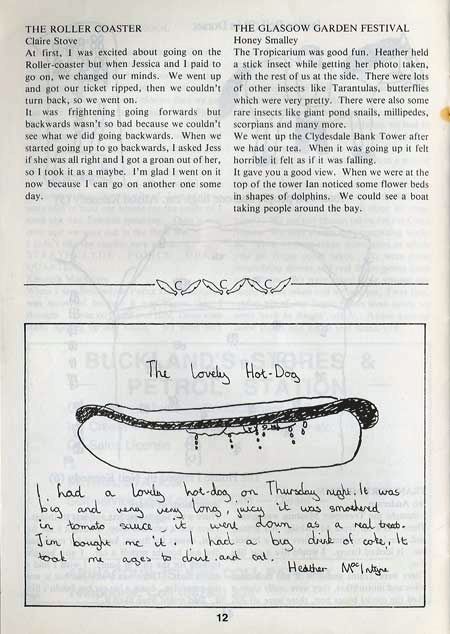 THE ROLLER COASTER
Claire Stove
At first, I was excited about going on the
Roller-coaster but when Jessica and I paid to
go on, we changed our minds. We went up
and got our ticket ripped, then we couldn't
turn back, so we went on.
It was frightening going forwards but
backwards wasn't so bad because we couldn't
see what we did going backwards. When we
started going up to go backwards, I asked Jess
if she was all right and I got a groan out of her,
so I took it as a maybe. I'm glad I went on it
now because I can go on another one some
day.
THE GLASGOW GARDEN FESTIVAL
Honey Smalley
The Tropicarium was good fun. Heather held
a stick insect while getting her photo taken,
with the rest of us at the side. There were lots
of other insects like Tarantulas, butterflies
which were very pretty. There were also some
rare insects like giant pond snails, millipedes,
scorpians and many more.
We went up the Clydesdale Bank Tower after
we had our tea. When it was going up it felt
horrible it felt as if it was falling.
It gave you a good view. When we were at the
top of the tower Ian noticed some flower beds
in shapes of dolphins. We could see a boat
taking people around the bay.
C C C
The Lovely Hot-Dog
I had a lovely hot-dog on Thursday night. It was
big and very very long, juicy it was smothered
in tomato sauce, it went down as a real treat.
Jim bought me it. I had a big drink of coke, It
took me ages to drink and eat.
Heather McIntyre
12
BUCKLAND'S STORES &
PETROL STATION